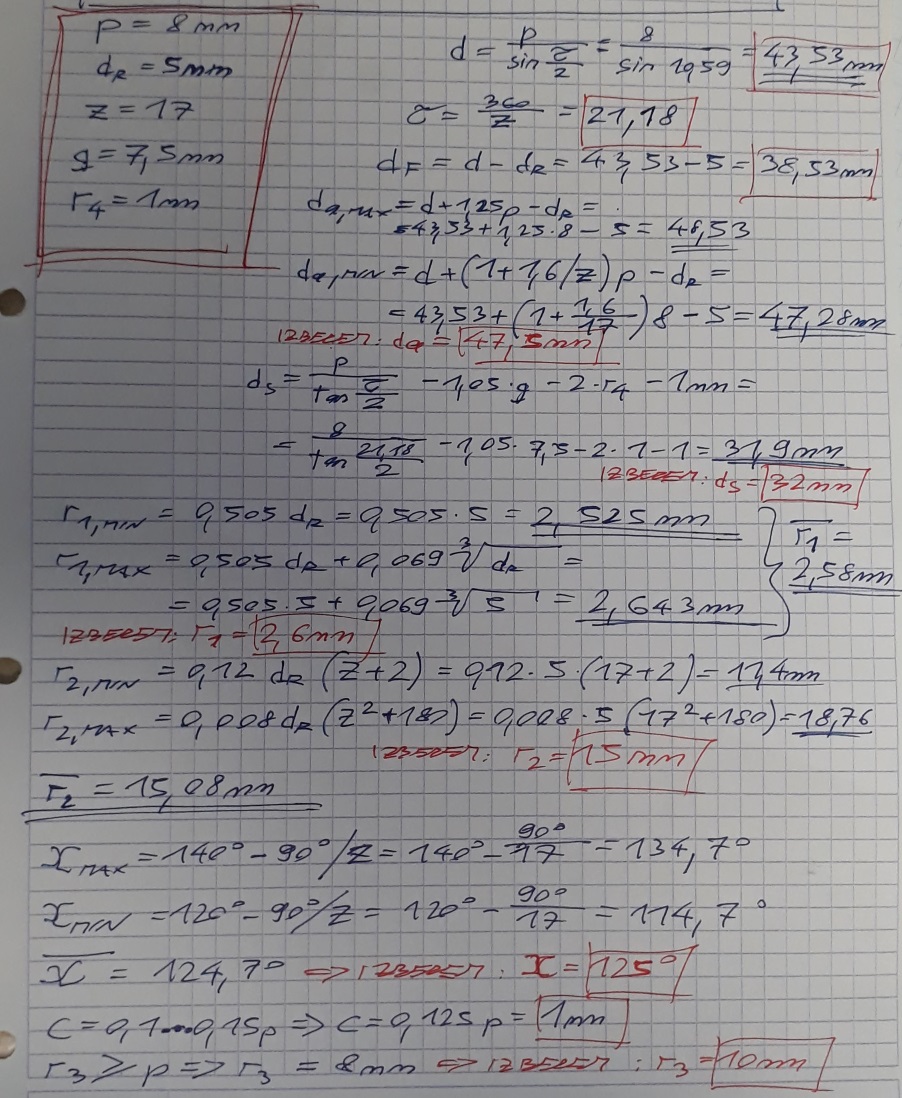 p = 8 mm
d_R = 5mm
z = 17
g = 7,5mm
r_4 = 1mm
d = p / sin τ/2 = 8 / sin 10,59 = 43,53mm
τ = 360/z = 21,18
d_F = d - d_R = 43,53-5 = 38,53mm
d_a,MAX = d+1,25p-d_R =
=43,53+1,25·8-5 = 48,53
d_a,MIN = d+(1+1,6/z)p-d_R =
= 43,53+(1+1,6/17)8-5 = 47,28mm
d_a = 47,5mm
d_s = p / tan τ/2 - 1,05·g - 2·r_4 - 1mm =
= 8 / tan 21,18/2 - 1,05·7,5-2·1-1 = 31,9mm
d_s = 32mm
r_1,MIN = 0,505 d_R = 0,505·5 = 2,525mm
r_1,MAX = 0,505 d_R + 0,069 ∛d_R =
= 0,505·5+0,069 ∛5 = 2,643mm
r̄_1 =
2,58mm
r_1 = 2,6mm
r_2,MIN = 0,12 d_R (z+2) = 0,12·5·(17+2) = 11,4mm
r_2,MAX = 0,008d_R (z²+180) = 0,008·5 (17²+180) = 18,76
r_2 = 15mm
r̄_2 = 15,08mm
x_MAX = 140° - 90°/z = 140° - 90°/17 = 134,7°
x_MIN = 120° - 90°/z = 120° - 90°/17 = 114,7°
x̄ = 124,7° ⇒ : x = 125°
c = 0,1...0,15p ⇒ c = 0,125p = 1mm
r_3 ≥ p ⇒ r_3 = 8mm ⇒ : r_3 = 10mm